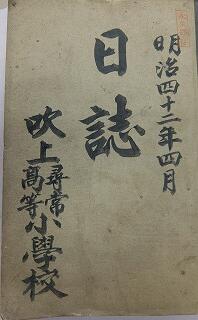 明治四十二年四月
日誌
吹上尋常高等小學校